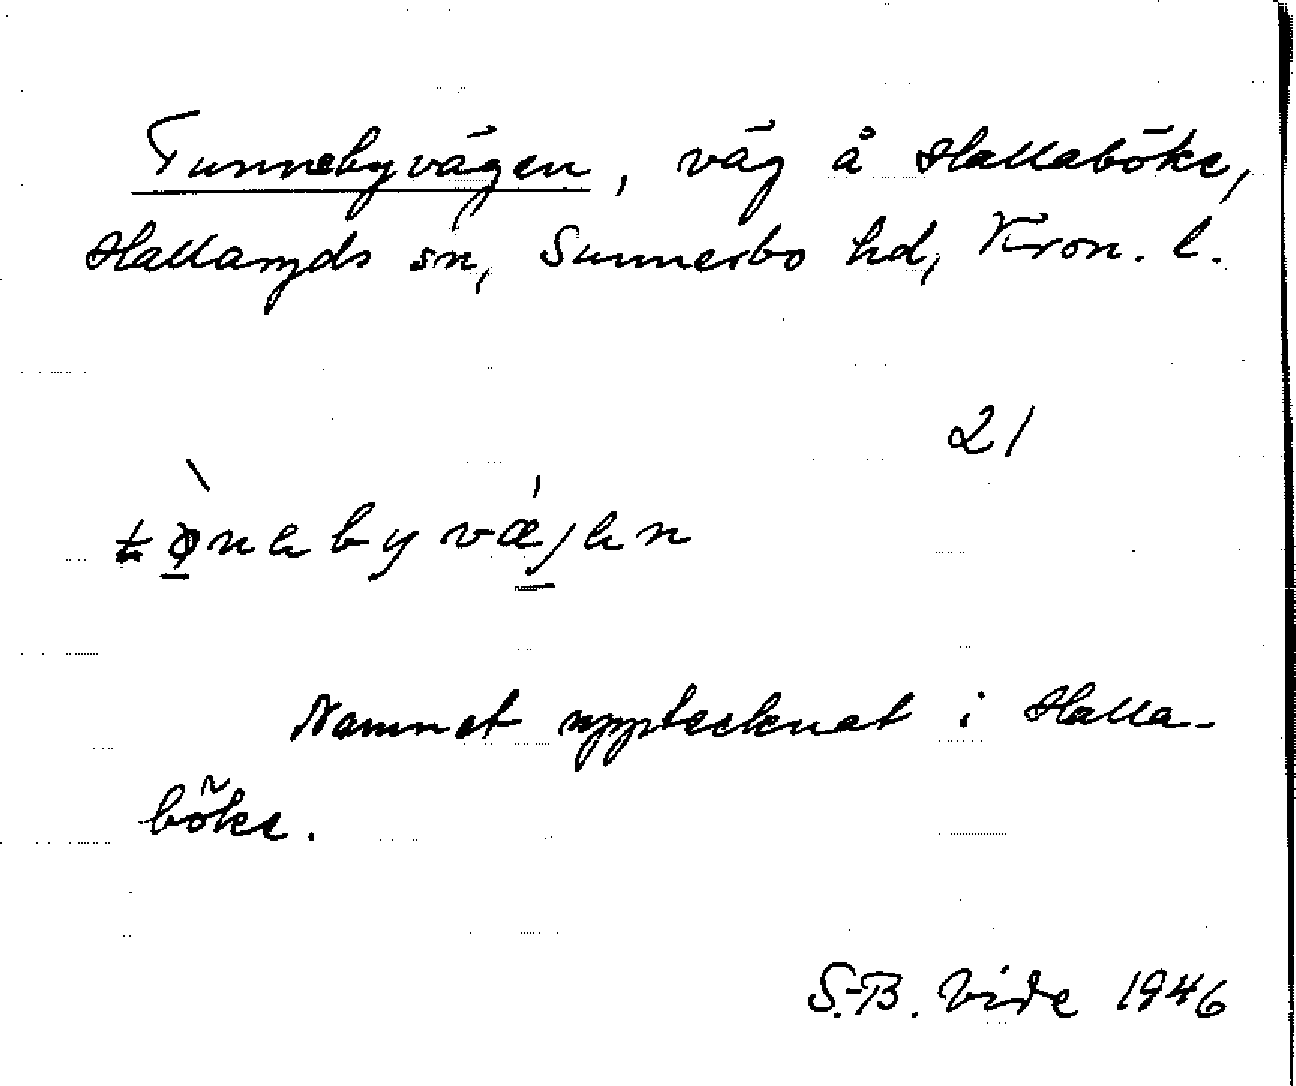 Tunnebyvägen, väg å Hallaböke,
Hallaryds sn, Sunnerbo hd, Kron. l.
21
tø̀nabyvǽjan
Namnet upptecknat i Halla-
böke.
S.-B. Vide 1946